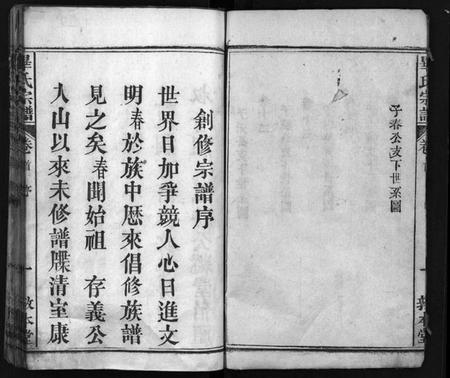 畢氏宗譜
卷首
子春公支下世系圖
一
敦本堂
創修宗譜序
世界日加爭競人心日進文
明春於族中歷來倡修族譜
見之矣春聞始祖 存義公
入山以來未修譜牒清室康
畢氏宗譜
卷首 序
一
敦本堂